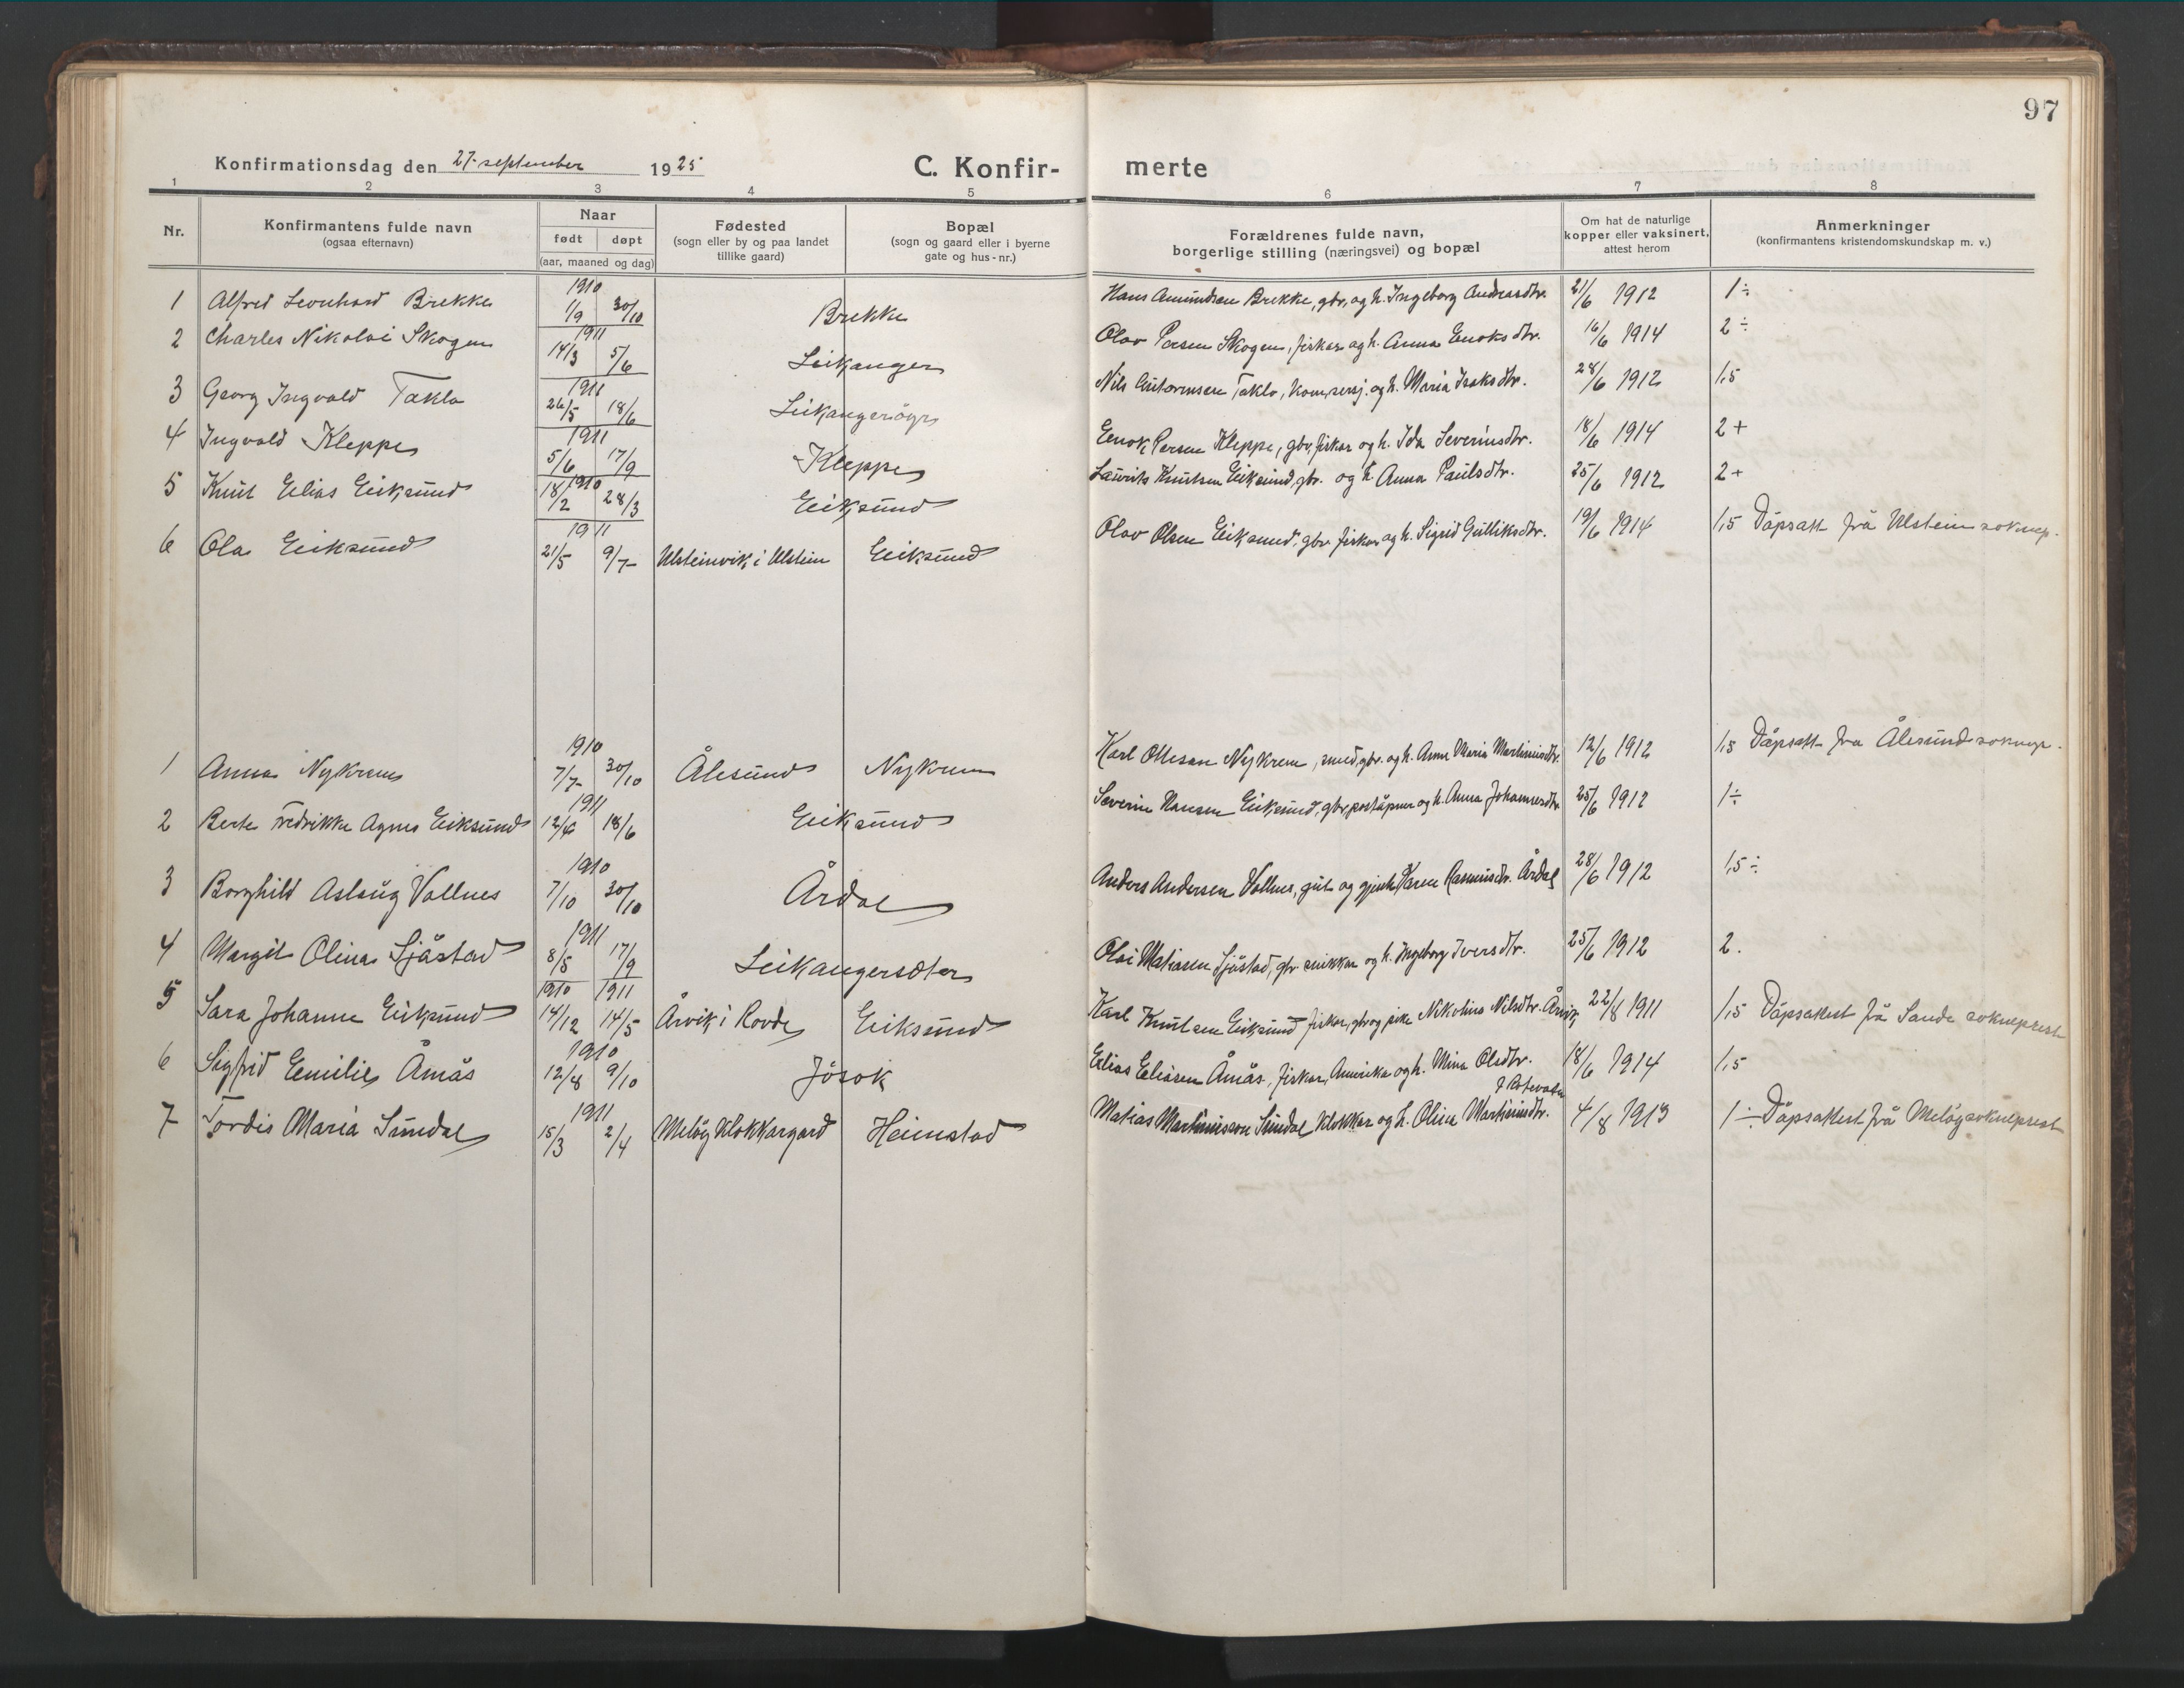 97
Konfirmationsdag den 27. september 1925 C. Konfirmerte
1 2 3 4 5 6 7 8
Nr. Konfirmantens fulde navn (ogsaa efternavn) Naar født døpt (aar, maaned og dag) Fødested (sogn eller by og paa landet tillike gaard) Bopæl (sogn og gaard eller i byerne gate og hus-nr.) Forældrenes fulde navn, borgerlige stilling (næringsvei) og bopæl Om hat de naturlige kopper eller vaksinert, attest herom Anmerkninger (konfirmantens kristendomskundskap m. v.)
1 Alfred Leonhard Brekke 1910 1/9 30/10 Brekke Hans Amundsen Brekke, gbr. og h. Ingeborg Andreasdtr. 21/6 1912 1÷
2 Charles Nikolai Skogen 1911 14/3 5/6 Leikanger Olav Persen Skogen, fiskar og h. Anna Enoksdtr. 16/6 1914 2÷
3 Georg Ingvald Taklo 1911 26/5 18/6 Leikangerøyr Nils Taklo, og h. Maria Isaksdtr. 28/6 1912 1,5
4 Ingvald Kleppe 1911 5/6 17/9 Kleppe Enok Persen Kleppe, gbr, fiskar og h. Ida Severinsdtr. 18/6 1914 2+
5 Knut Elias Eiksund 1910 18/2 28/3 Eiksund Laurits Knutsen Eiksund, gbr. og h. Anna Paulsdtr. 25/6 1912 2+
6 Ola Eiksund 1911 21/5 9/7 Ulsteinvik i Ulstein Eiksund Olav Olsen Eiksund, gbr. fiskar og h. Sigrid Gulliksdtr. 19/6 1914 1,5 Dåpsatt. frå Ulstein soknep.
1 Anna Nykrem 1910 7/7 30/10 Ålesund Nykrem Karl Olleson Nykrem, smed, gbr. og h. Anne Maria Martinusdtr. 12/6 1912 1,5 Dåpsatt. fra Ålesund soknepr.
2 Berte Fredrikke Agnes Eiksund 1911 12/4 18/6 Eiksund Severin Hansen Eiksund, gbr, poståpnar og h. Anna Johannesdtr. 25/6 1912 1÷
3 Borghild Aslaug Vollnes 1910 7/10 30/10 Årdal Anders Andersen Vollnes, gut og gjenta Karen Rasmusdtr. Årdal 28/6 1912 1,5÷
4 Margit Olina Sjåstad 1911 8/5 17/9 Leikangersæter Olai Matiasen Sjåstad, gbr. snikkar og h. Ingeborg Iversdtr. 25/6 1912 2.
5 Sara Johanne Eiksund 1910 14/12 1911 14/5 Årvik i Rovde Eiksund Karl Knutsen Eiksund fiskar, gbr og pike Nikoline Nilsdtr. Årvik 22/8 1911 1,5 Dåpsattest frå Sande sokneprest
6 Sigfrid Emilie Åmås 1910 12/8 9/10 Jøsok Elias Eliasen Åmås, fiskar, Amerika og h. Mina Olsdtr. 18/6 1914 1,5
7 Tordis Maria Sundal 1911 15/3 2/4 Meløy Klokkargard Heimstad Matias Martinusson Sundal klokkar og h. Olina Martinusdtr. 4/8 1913 1÷ Dåpsattest frå Meløy sokneprest